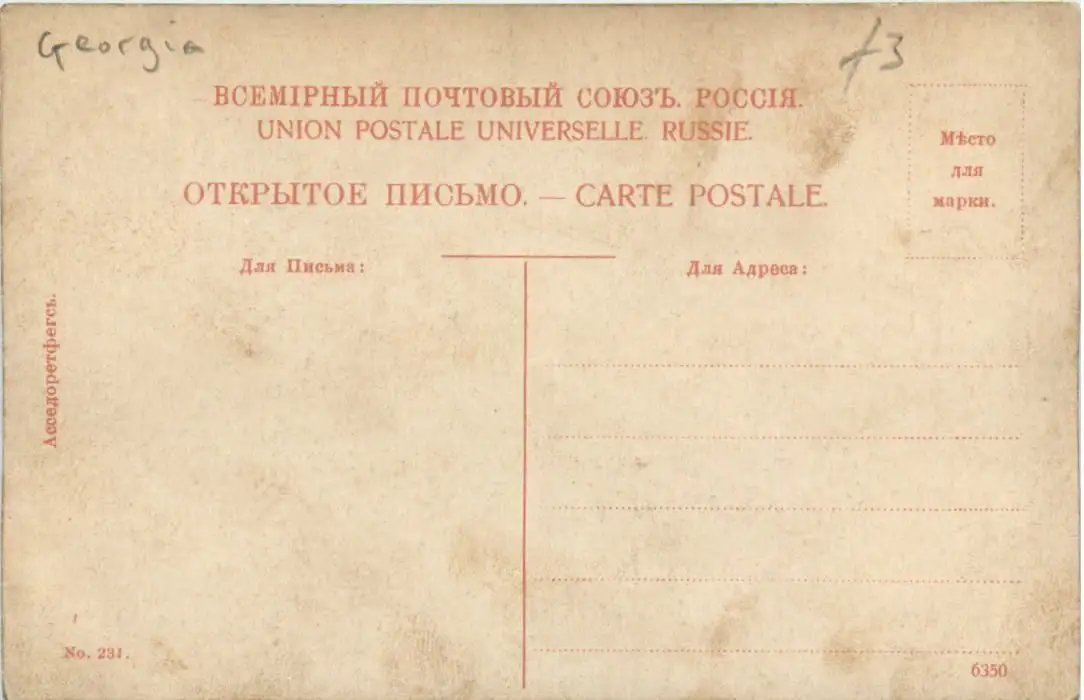 Georgia
f3
ВСЕМІРНЫЙ ПОЧТОВЫЙ СОЮЗЪ. РОССІЯ.
UNION POSTALE UNIVERSELLE. RUSSIE.
Мѣсто
для
марки.
ОТКРЫТОЕ ПИСЬМО. — CARTE POSTALE.
Для Письма:
Для Адреса:
Асседоретфегсь.
No. 231.
6350